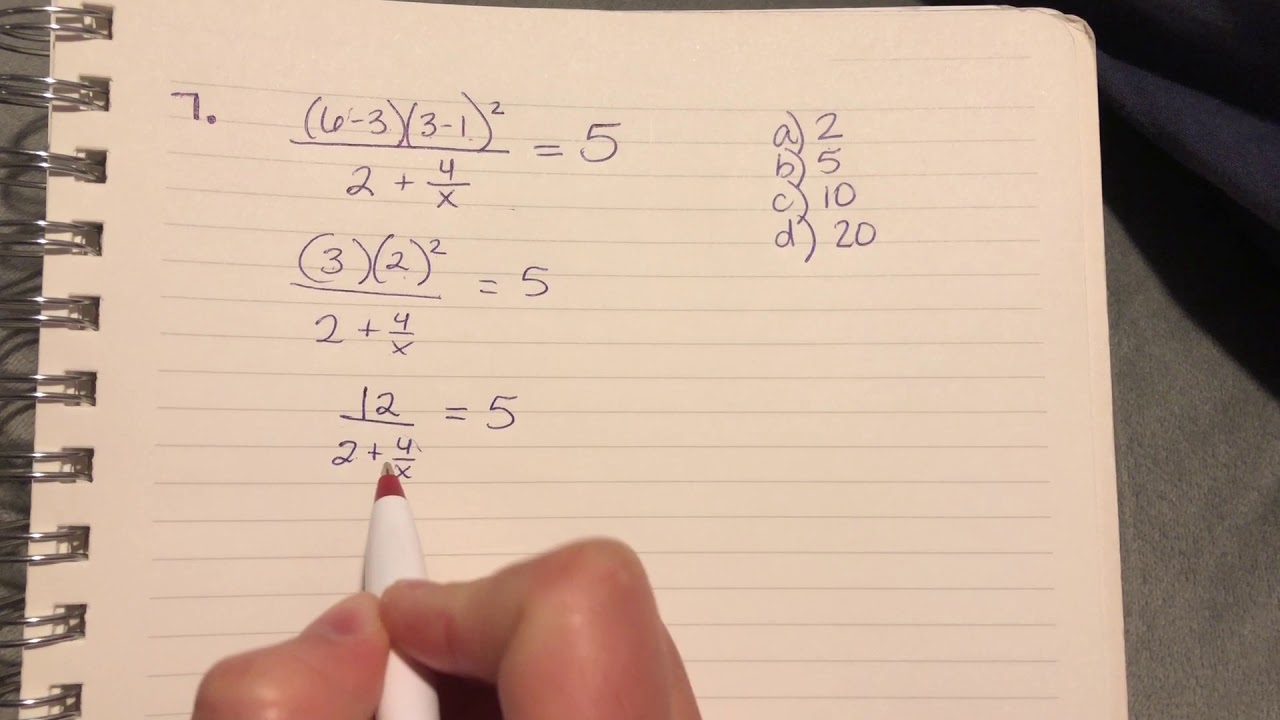 7. (6-3)(3-1)² / (2 + 4/x) = 5
a) 2
b) 5
c) 10
d) 20
(3)(2)² / (2 + 4/x) = 5
12 / (2 + 4/x) = 5